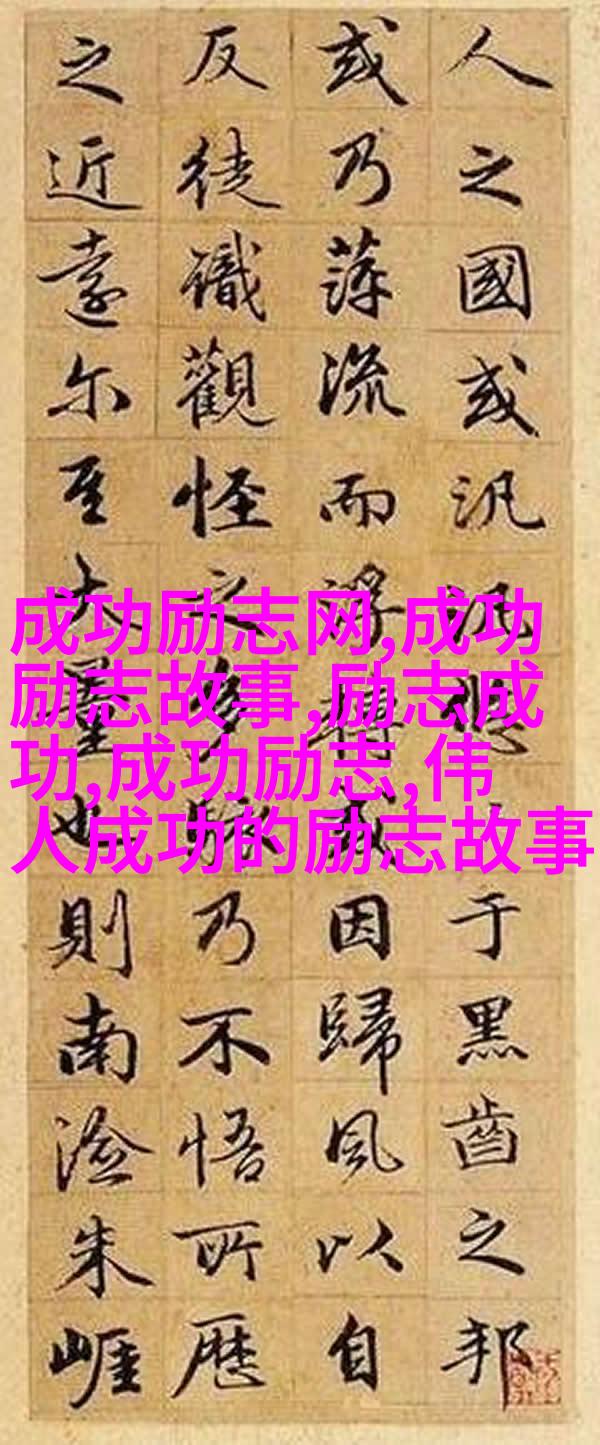 人之國或汎汎悠于黑齒之邦
或乃蓱流而浮轉或因歸風以自
反徒識觀怪之多駭乃不悟所歷
之近遠尔至大量也則南澰朱崖
成功励志网,成功
励志故事,励志成
功,成功励志,伟
人成功的励志故事